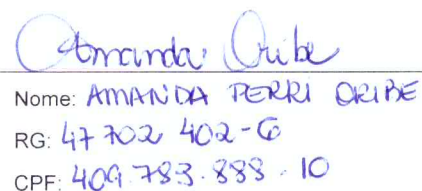 Amanda Oribe
Nome: AMANDA PERRI ORIBE
RG: 47 702 402-6
CPF: 409.783.888-10